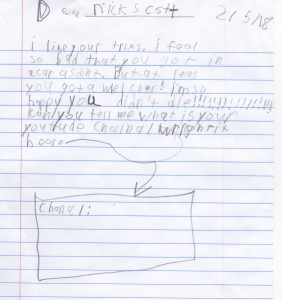 Dear Nick Scott
21/5/18
i like your triks. i feal
so bad that you got in
acar asdint. But at leas
you got a wel char! i'm so
happy you didn't die!!!!!!!!!!!!!!!!
Can you tell me what is your
youtude Chanal wright it
heare
Chanal: